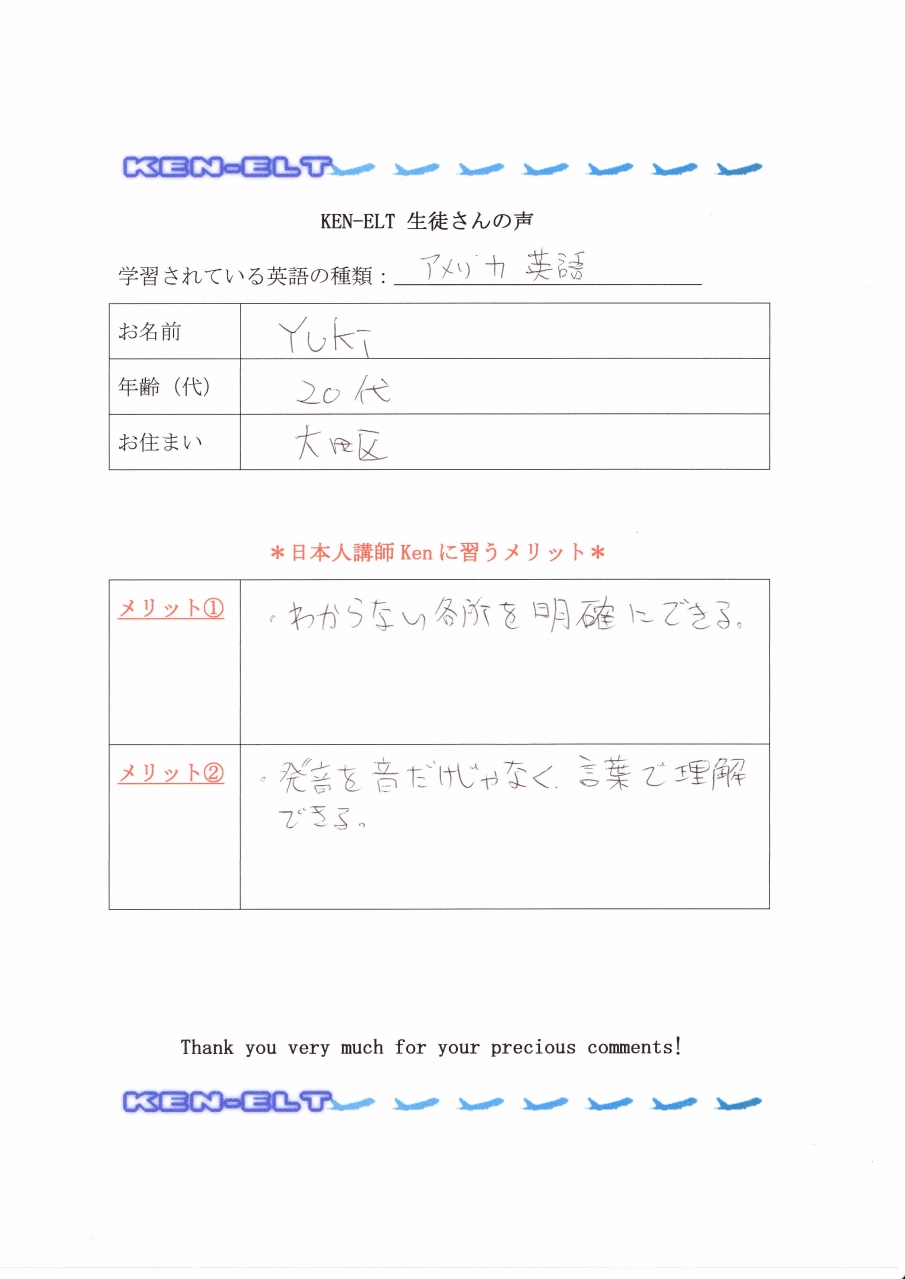 KEN-ELT
KEN-ELT 生徒さんの声
学習されている英語の種類： アメリカ 英語
お名前 Yuki
年齢（代） 20代
お住まい 大田区
＊日本人講師 Ken に習うメリット＊
メリット① ・わからない各所を明確にできる。
メリット② ・発音を音だけじゃなく、言葉で理解
できる。
Thank you very much for your precious comments!
KEN-ELT